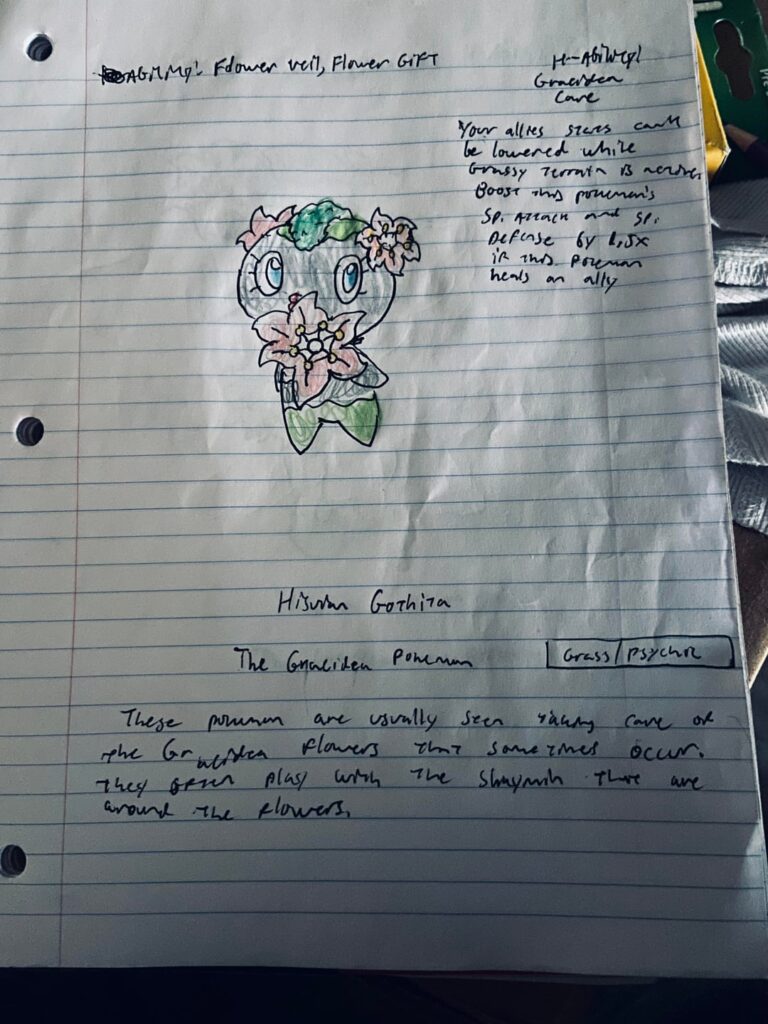 Ability: Flower veil, Flower Gift
H-Ability:
Gracidea
Care
Your allies stats can't
be lowered while
Grassy Terrain is active.
Boost this pokemon's
Sp. Attack and Sp.
Defense by 1.5x
if this Pokemon
heals an ally
Hisuian Gothita
The Gracidea Pokemon
Grass/Psychic
These pokemon are usually seen taking care of
the Gracidea flowers that sometimes occur.
They often play with the Shaymin that are
around the flowers.